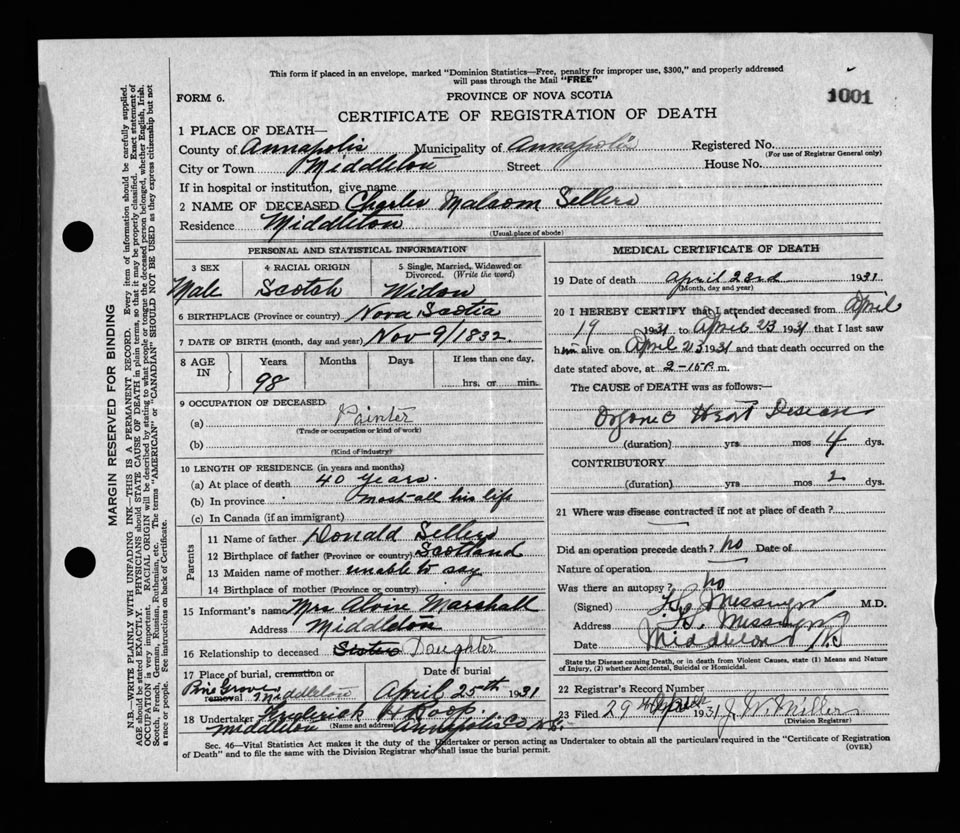 This form if placed in an envelope, marked "Dominion Statistics—Free, penalty for improper use, $300," and properly addressed
will pass through the Mail "FREE"
FORM 6.
PROVINCE OF NOVA SCOTIA
1001
CERTIFICATE OF REGISTRATION OF DEATH
1 PLACE OF DEATH—
County of Annapolis Municipality of Annapolis Registered No.
(For use of Registrar General only)
City or Town Middleton Street House No.
If in hospital or institution, give name
2 NAME OF DECEASED Charles Malcom Sellers
Residence Middleton
(Usual place of abode)
PERSONAL AND STATISTICAL INFORMATION
3 SEX 4 RACIAL ORIGIN 5 Single, Married, Widowed or Divorced. (Write the word)
Male Scotch Widow
6 BIRTHPLACE (Province or country) Nova Scotia
7 DATE OF BIRTH (month, day and year) Nov 9/1832
8 AGE IN Years Months Days If less than one day,
98 hrs. or min.
9 OCCUPATION OF DECEASED
(a) Painter
(Trade or occupation or kind of work)
(b)
(Kind of industry)
10 LENGTH OF RESIDENCE (in years and months)
(a) At place of death 40 years.
(b) In province most all his life
(c) In Canada (if an immigrant)
Parents
11 Name of father Donald Sellers
12 Birthplace of father (Province or country) Scotland
13 Maiden name of mother unable to say
14 Birthplace of mother (Province or country)
15 Informant's name Mrs Alvin Marshall
Address Middleton
16 Relationship to deceased Daughter
17 Place of burial, cremation or removal Date of burial
Pine Grove Middleton April 25th 1931
18 Undertaker Frederick H Roop.
(Name and address)
Middleton Annapolis Co N.S.
MEDICAL CERTIFICATE OF DEATH
19 Date of death April 23rd 1931
(Month, day and year)
20 I HEREBY CERTIFY that I attended deceased from April
19 1931 to April 23 1931 that I last saw
him alive on April 23 1931 and that death occurred on the
date stated above, at 2-15 P.m.
The CAUSE of DEATH was as follows:—
Organic Heart Disease
(duration) yrs mos 4 dys.
CONTRIBUTORY
(duration) yrs mos 2 dys.
21 Where was disease contracted if not at place of death?
Did an operation precede death? no Date of
Nature of operation
Was there an autopsy? no
(Signed) Messenger M.D.
Address Messenger
Date Middleton NS
State the Disease causing Death, or in death from Violent Causes, state (1) Means and Nature
of Injury, (2) whether Accidental, Suicidal or Homicidal.
22 Registrar's Record Number
23 Filed 29th April 1931 J. W. Miller
(Division Registrar)
Sec. 46—Vital Statistics Act makes it the duty of the Undertaker or person acting as Undertaker to obtain all the particulars required in the "Certificate of Registration
of Death" and to file the same with the Division Registrar who shall issue the burial permit.
(OVER)
MARGIN RESERVED FOR BINDING
N.B. WRITE PLAINLY WITH UNFADING INK—THIS IS A PERMANENT RECORD. Every item of information should be carefully supplied.
AGE should be stated EXACTLY. PHYSICIANS should STATE CAUSE OF DEATH in plain terms, so that it may be properly classified. Exact statement of
OCCUPATION is very important. RACIAL ORIGIN will be described by stating to what people or tongue the deceased person belonged, whether English, Irish,
Scotch, French, German, Russian, Ruthenian, etc. The terms "AMERICAN" or "CANADIAN" SHOULD NOT BE USED as they express citizenship but not
a race or people. See instructions on back of Certificate.